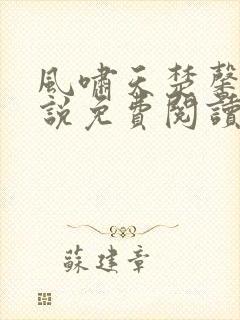 風嘯天楚馨
說免費閱讀
蘇建章